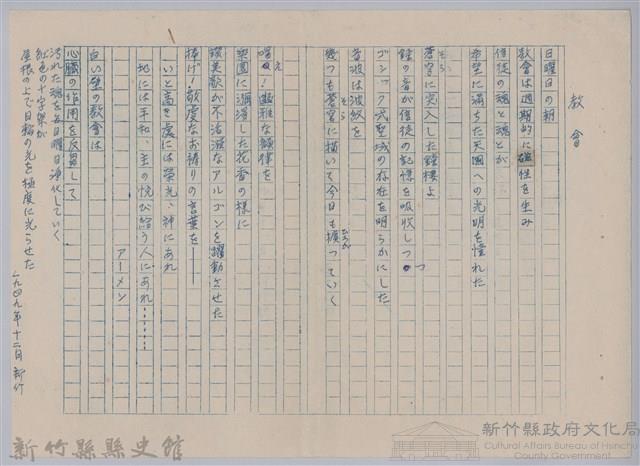 教會
日曜日の朝
教會は週期的に磁性を生み
信徒の魂と魂とが
希望に満ちた天國への光明を憧れた
蒼空に突入した鐘樓よ
鐘の音が信徒の記憶を吸收しつつ
ゴシック式聖域の存在を明らかにした
音波は波紋を
幾つも蒼空に描いて今日も擴つていく
優雅な韻律を
樂園に瀰漫した花香の様に
讃美歌が不活潑なアルゴンを躍動させた
捧げ!敬虔なお祷りの言葉を——
いと高き處には榮光、神にあれ
地には平和、主の悦び給う人にあれ……
アーメン
白い壁の教會は
心臓の作用を反覆して
汚れた魂を毎日曜日淨化していく
紅色の十字架が
屋根の上で日輪の光を極度に光らせた
一九四九年十二日 新竹
新竹縣縣史館
新竹縣政府文化局
Cultural Affairs Bureau of Hsinchu
County Government